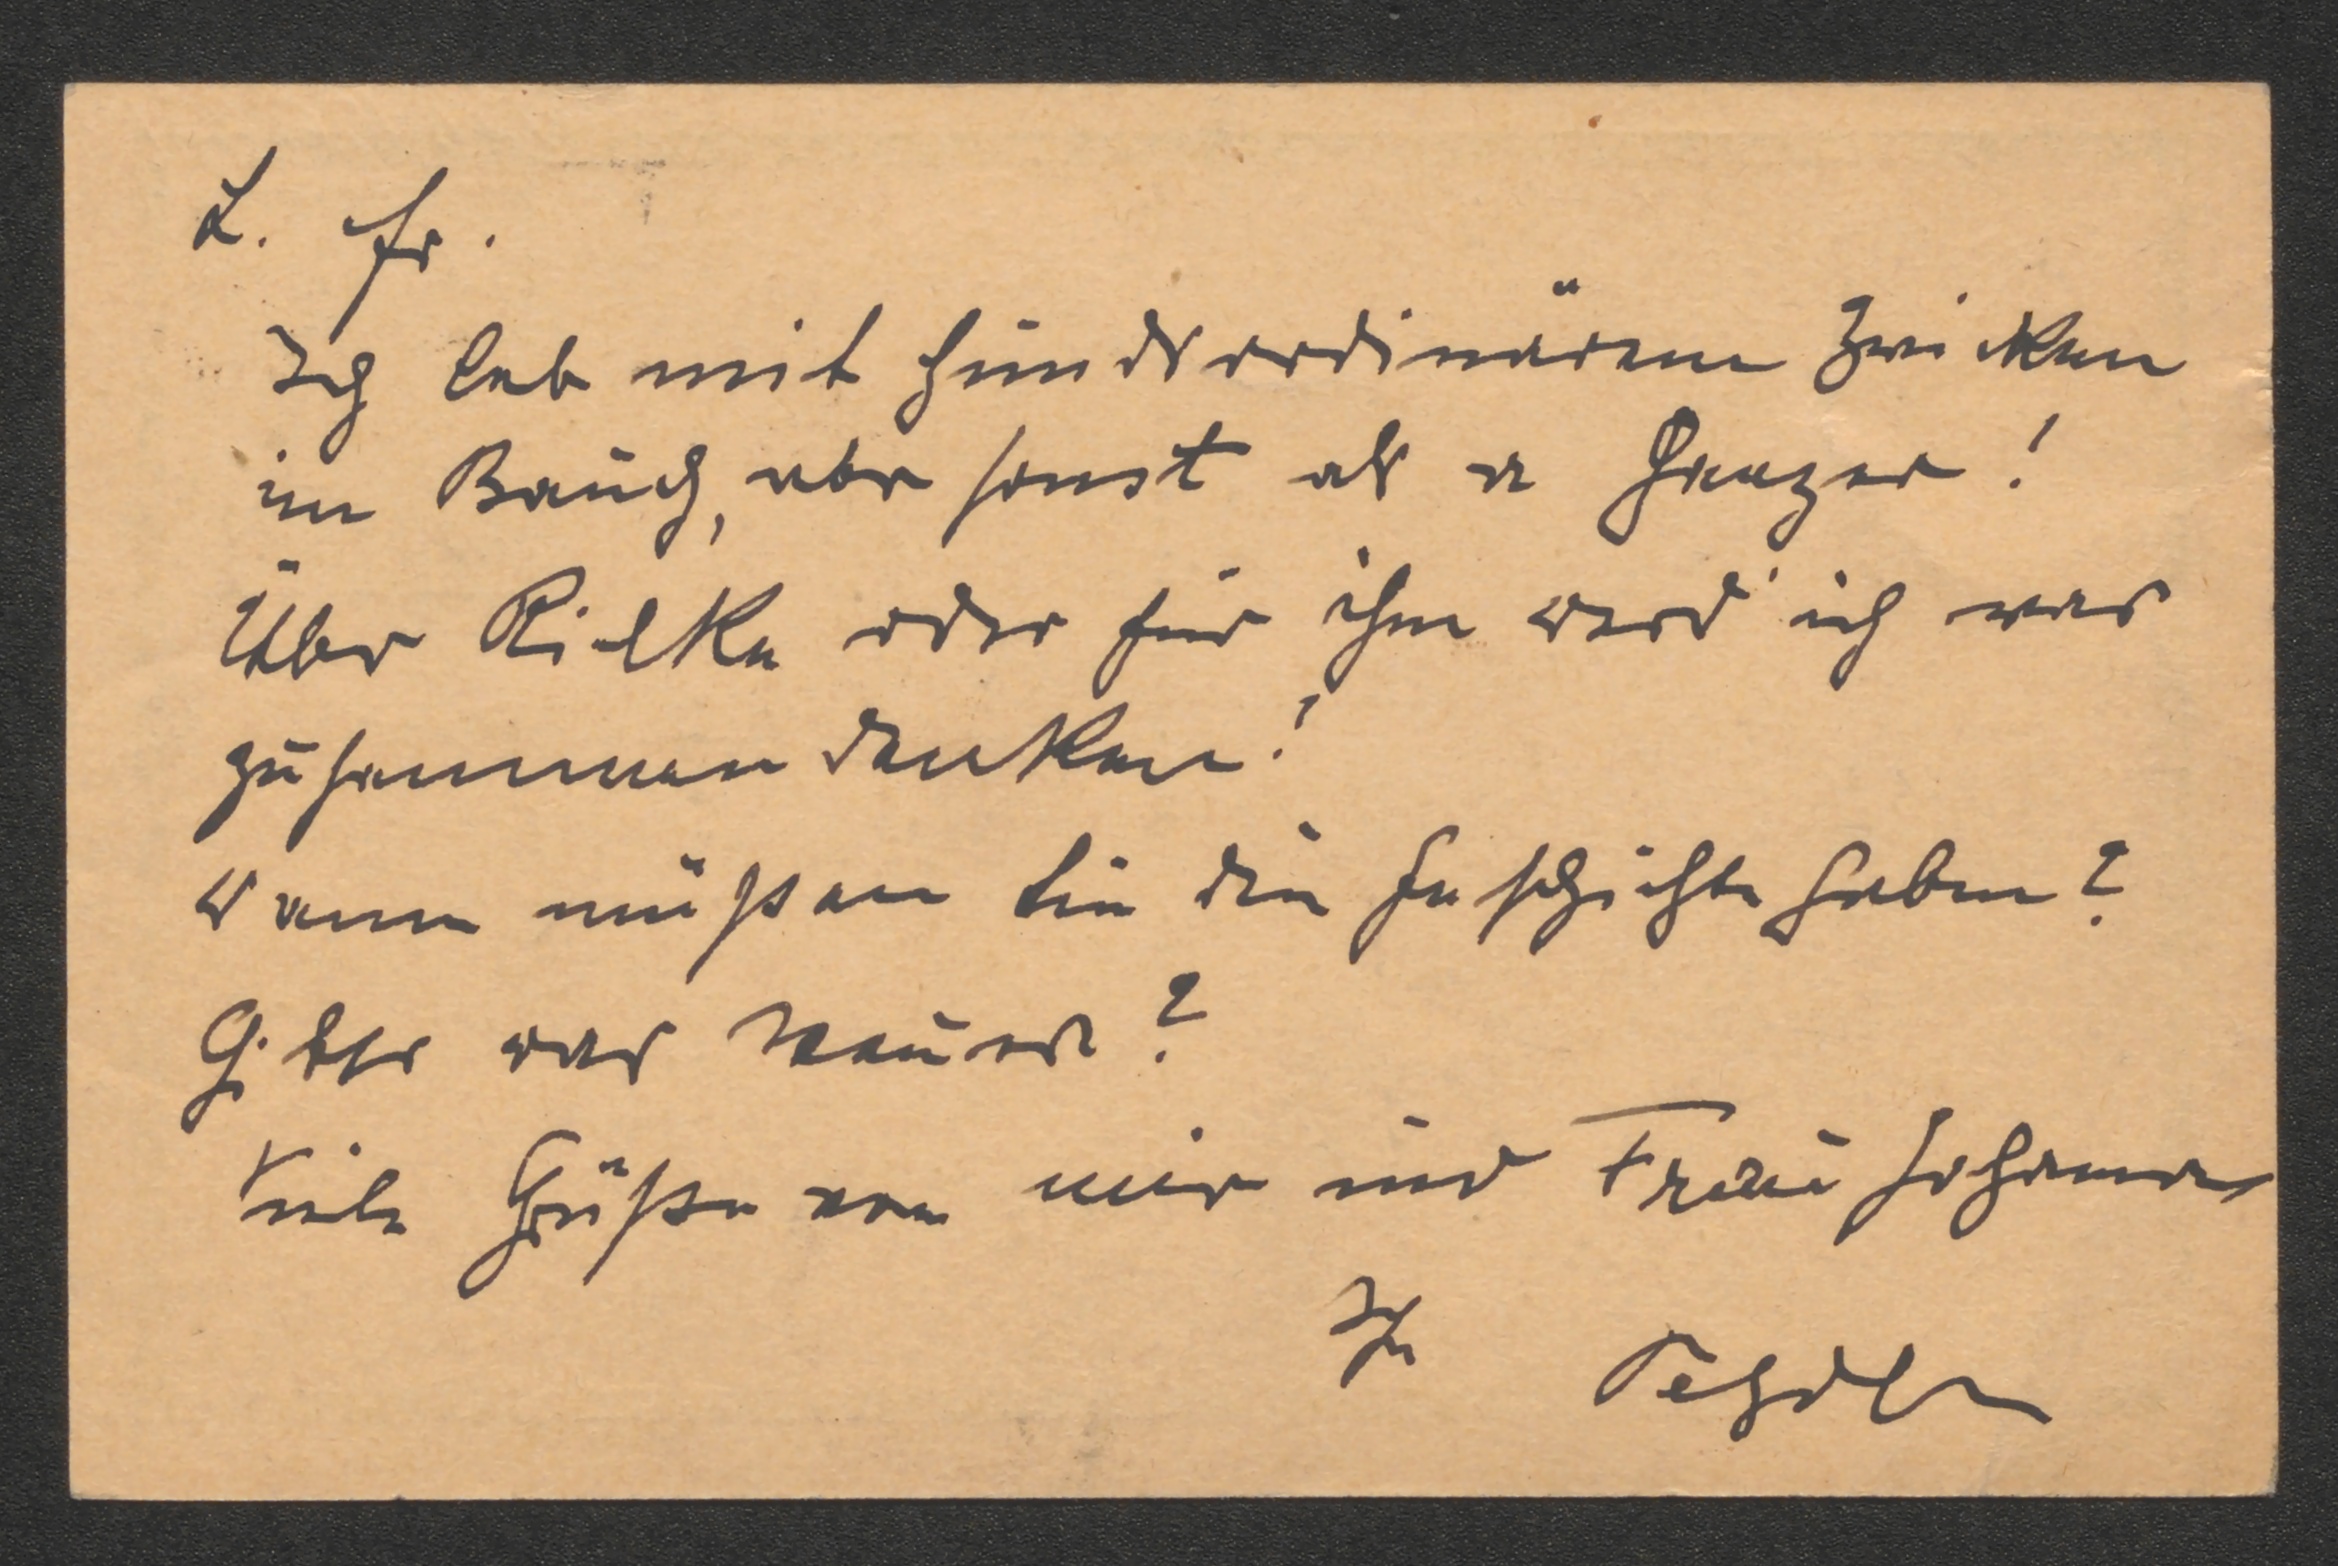 L. Fr.
Ich leb mit hundsordinärem Zwicken
im Bauch, aber sonst als a Ganzer!
Über Rilke oder für ihm werd' ich was
zusammendenken!
Wann müßen Sie die Geschichte haben?
Gibts was Neues?
Viele Grüße von mir und Frau Johanna
Ihr